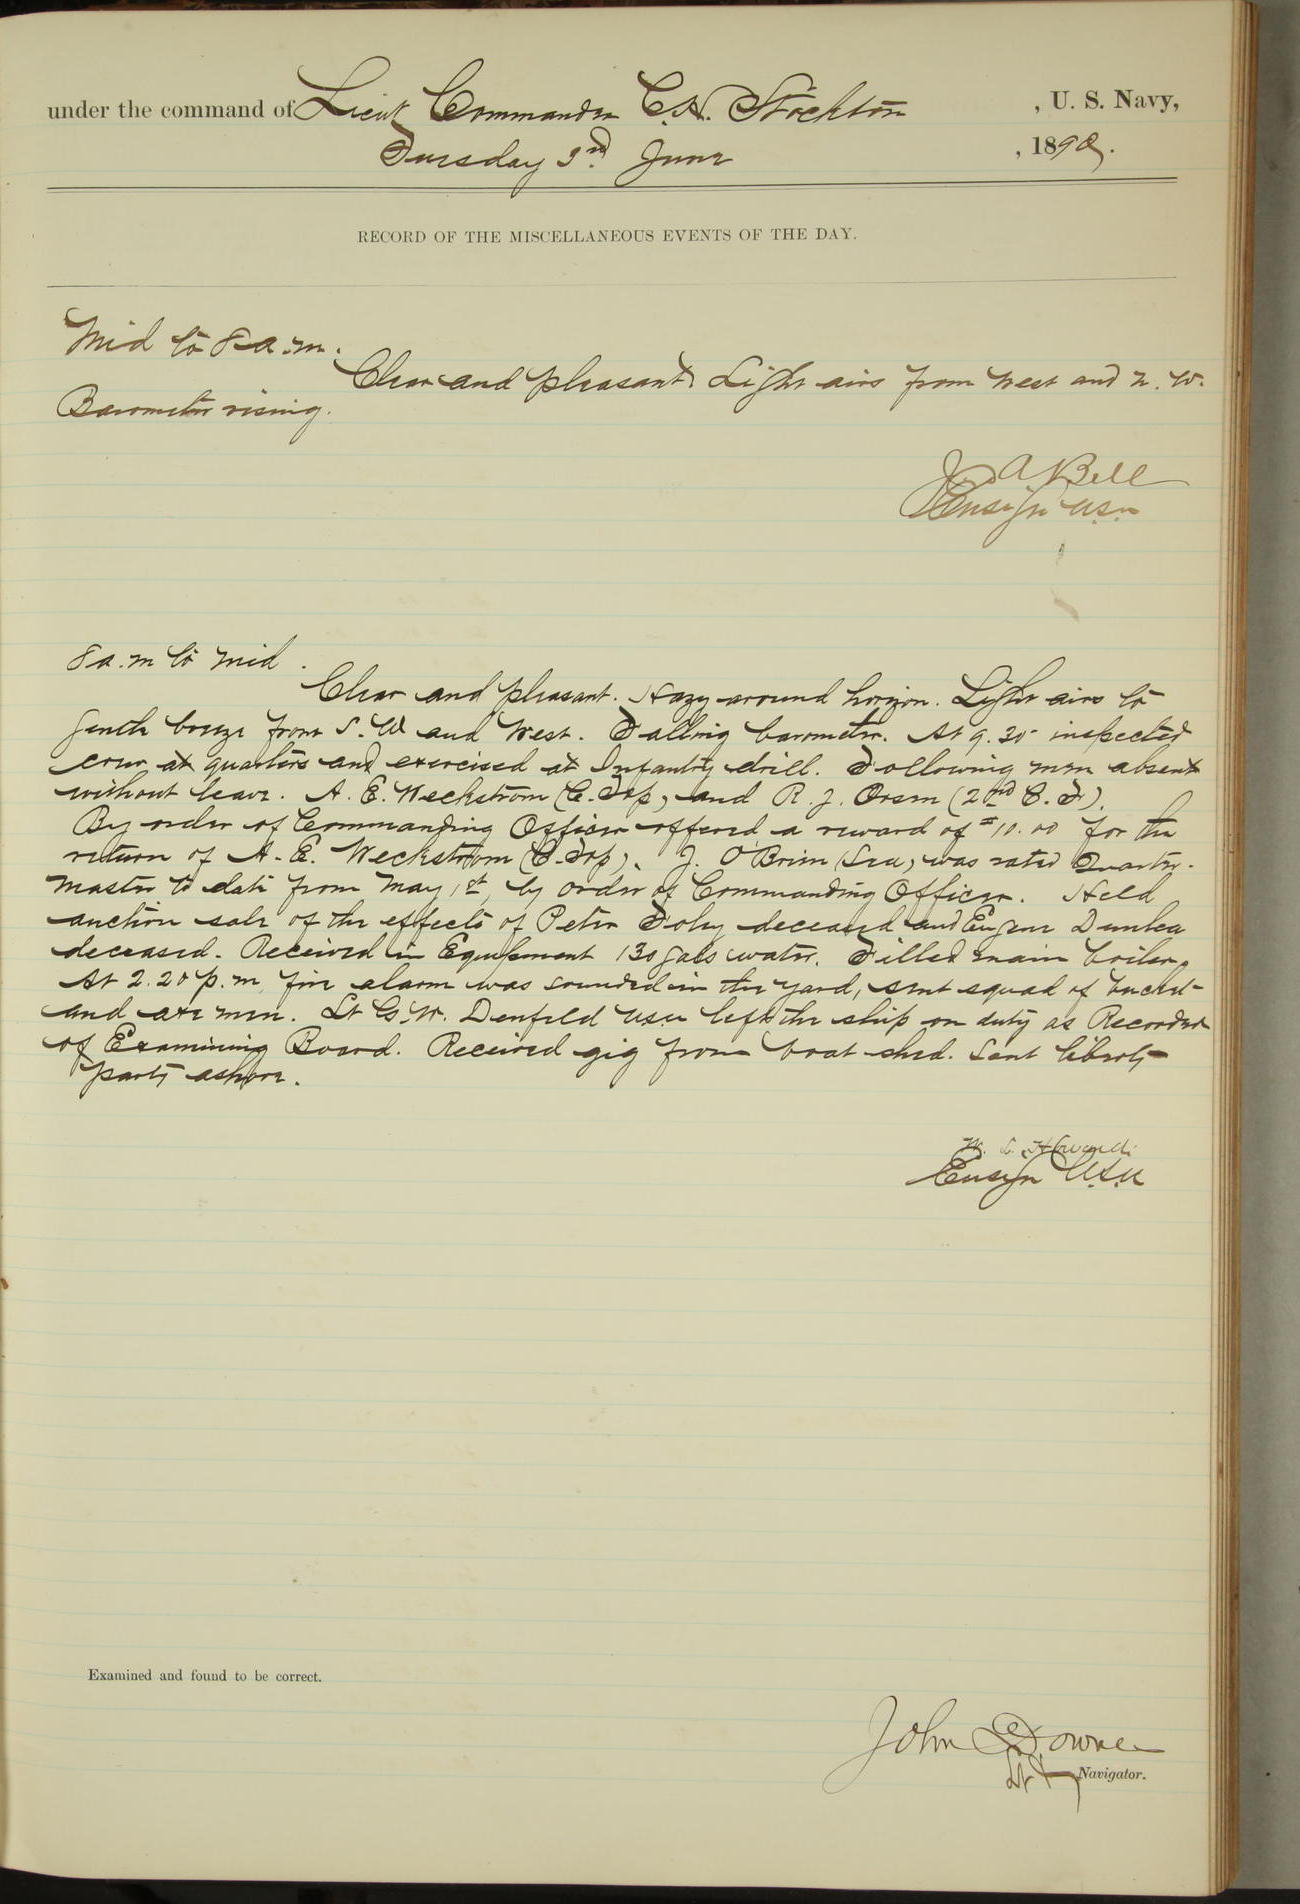 under the command of Lieut Commander C.H. Stockton, U. S. Navy,
Tuesday 3rd June, 1890.
RECORD OF THE MISCELLANEOUS EVENTS OF THE DAY.
Mid to 8 a.m.
Clear and pleasant. Light airs from West and N. W.
Barometer rising.
J. A Bell
Ensign U.S.N.
8 a.m to Mid.
Clear and pleasant. Hazy around horizon. Light airs to
gentle breeze from S. W and West. Falling barometer. At 9.30 inspected
crew at quarters and exercised at Infantry drill. Following men absent
without leave. A. E. Weckstrom (C. Top) and R. J. Orsm (2nd C. F.).
By order of Commanding Officer offered a reward of $10.00 for the
return of A. E. Weckstrom (C. Top). J. O'Brien (Sea) was rated Quarter-
master to date from May 1st, by order of Commanding Officer. Held
auction sale of the effects of Peter Foley deceased and Eugene Dunlea
deceased. Received in Equipment 130 gals water. Filled main boiler.
At 2.20 p.m. fire alarm was sounded in the yard, sent squad of bucket
and axe men. Lt G. W. Denfeld USN left the ship on duty as Recorder
of Examining Board. Received gig from boat shed. Sent liberty
party ashore.
W. L. Howard.
Ensign U.S.N
Examined and found to be correct.
John Downes
Lt & Navigator.